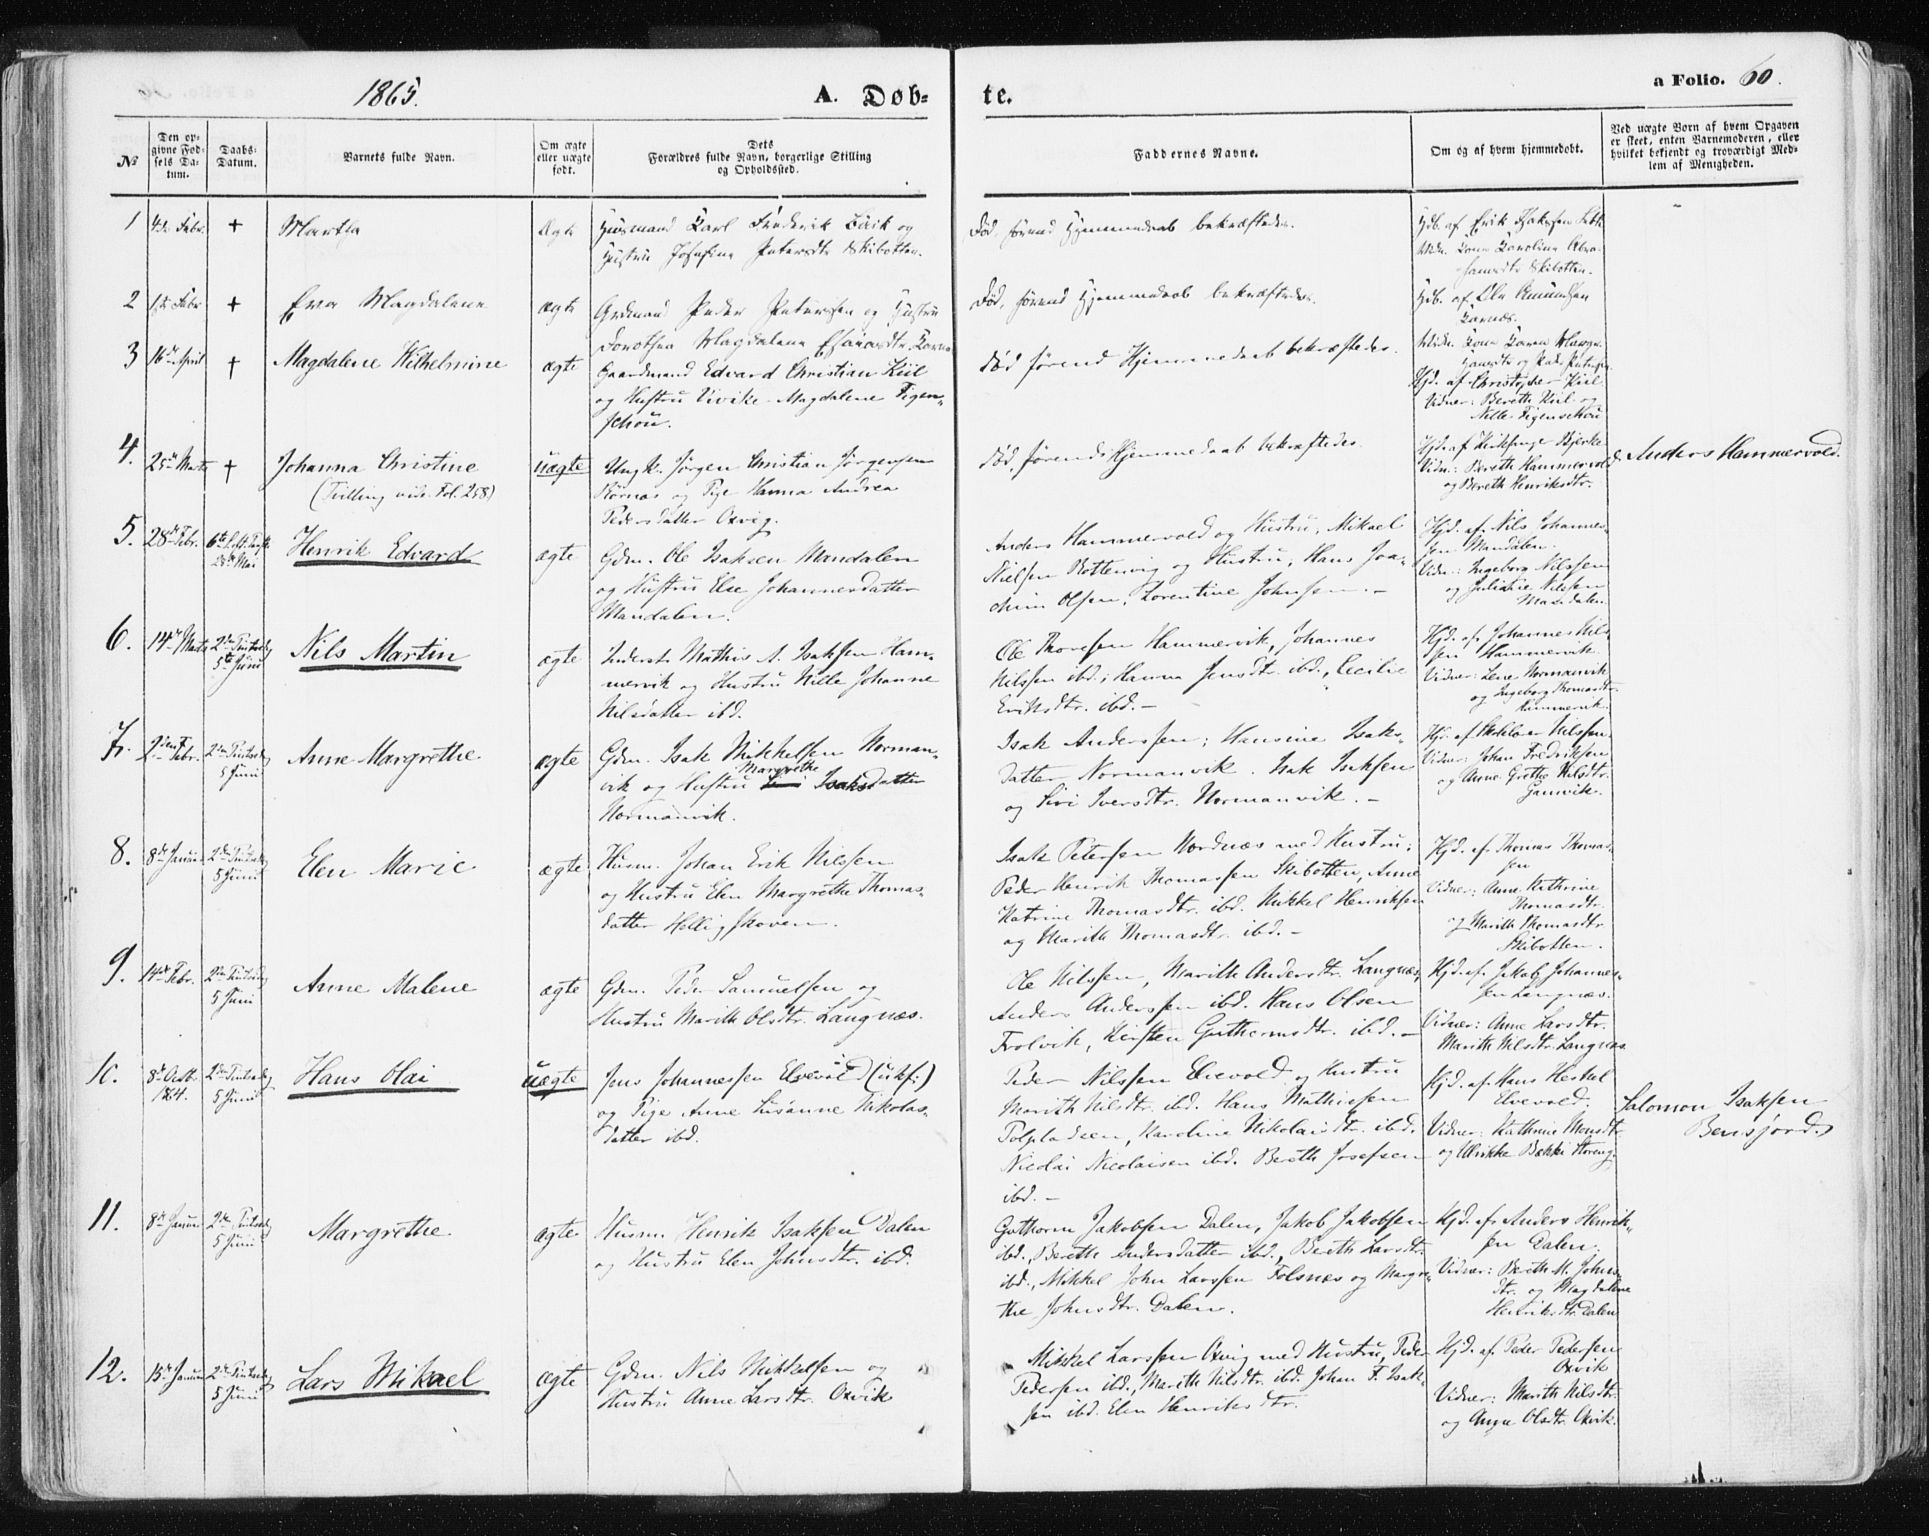 1865.
A. Døb-
te.
a Folio. 60.
№
Den op-
givne Fød-
sels Da-
tum.
Daabs-
Datum.
Barnets fulde Navn.
Om ægte
eller uægte
født.
Dets
Forældres fulde Navn, borgerlige Stilling
og Opholdssted.
Faddernes Navne.
Om og af hvem hjemmedøbt.
Ved uægte Børn af hvem Opgaven
er skeet, enten Barnemoderen, eller
hvilket bekjendt og troværdigt Med-
lem af Menigheden.
1 4de Febr. + Martha Ægte
Huusmand Carl Frederik og
Hustru Josefine Petersdtr Skibotten.
Død, førend Hjemmedaab bekræftedes.
Hdb. af Erik Isaksen
Karoline Abra-
hamsdtr Skibotten.
2 1ste Febr + Eva Magdalena ægte
Grdmand Peder Petersen og Hustru
Dorothea Magdalena
Død, førend Hjemmedaab bekræftedes.
Hdb. af Ole Amundsen
3 16de April + Magdalene Wilhelmine ægte
Gaardmand Edvard Christian Kiil
og Hustru Vivike Magdalene Figen-
schou.
Død førend Hjemmedaab bekræftedes.
Hjd. af Christopher Kiil
Vidner: Bereth Kiil og
Nille Figenschou
4. 25de Marts + Johanna Christine
(Tvilling vide Fol. 258)
uægte
Ungk. Jørgen Christian Jørgensen
og Pige Hanna Andrea
Pedersdatter Oxvig.
Død, førend Hjemmedaab bekræftedes
Hjd. af Kirkesanger Bjerke
Vidn: Bereth Hammervold
og Bereth Henriksdtr.
Anders Hammervold.
5. 28de Febr. 28de Mai
Henrik Edvard ægte
Gdm. Ole Isaksen Mandalen
og Hustru Else Johannesdatter
Mandalen.
Anders Hammervold og Hustru, Mikael
Nielsen Rottenvig og Hustru, Hans Joa-
chim Olsen, Lorentine Johnsen. -
Hjd. af Nils Johannes-
sen Mandalen.
Vidn: Ingeborg Nilssen
og Nilssen
Mandalen
6. 14de Marts 2den Pintsedag
5te Juni
Nils Martin ægte
Inderst Mathis A. Isaksen Ham-
mervik og Hustru Nille Johanne
Nilsdatter ibd.
Ole Thoresen Hammervik, Johannes
Nilssen ibd; Hanna Jensdtr. ibd., Cecilie
Eriksdtr. ibd. -
Hjd. af Johannes Nils-
sen Hammervik.
Vidner: Lene Normanvik
og Ingeborg Thomasdtr.
Hammervik.
7. 2den Febr. 2den Pintsedag
5 Juni
Anne Margrethe ægte
Gdm. Isak Mikkelsen Norman-
Margrethe
vik og Hustru Isaksdatter
Normanvik.
Isak Anderssen; Hansine Isaks-
datter Normanvik. Isak Isaksen
og Siri Iversdtr. Normanvik. -
Hjd. af Nilssen.
Vidner: Johan Fredriksen
og Anne Grethe Nilsdtr.
Gamvik.
8. 8de Januar 2den Pintsedag
5 Juni
Elen Marie ægte
Husm. Johan Erik Nilssen
og Hustru Elen Margrethe Thomas-
datter Helligskoven.
Isak Petersen Nordnæs med Hustru;
Peder Henrik Thomassen Skibotten, Anne
Katrine Thomasdtr. ibd. Mikkel Henriksen
og Marith Thomasdtr. ibd. -
Hjd. af Thomas Thomas-
sen
Vidner: Anne Kathrine
Thomasdtr.
og Marith Thomasdtr
Skibotten.
9. 14de Febr. 2den Pintsedag
5 Juni
Anne Malene ægte
Gdm. Peder Samuelsen og
Hustru Marith Olsdtr. Langnæs.
Ole Nilssen, Marith Andersdtr. Langnæs,
Anders Anderssen ibd. Hans Olsen
Frolvik, Kirsten Guthormsdtr. ibd. -
Hjd. af Jakob Johannes-
sen Langnæs.
Vidner: Anne Larsdtr.
Marith Nilsdtr. Langnæs
10. 8de Octb.
1864. 2den Pintsedag
5 Juni
Hans Olai uægte
Jens Johannessen Elvevold (
og Pige Anne Susanne Nikolas-
datter ibd.
Peder Nilssen Elvevold og Hustru
Marith Nilsdtr. ibd. Hans Mathissen
Karoline Nikolaidtr. ibd.
Nicolai Nicolaisen ibd. Bereth Josefsen
ibd. -
Hjd. af Hans Heskel
Elvevold.
Vidner: Kathrine Monsdtr.
og Ulrikke Bækki Storeng.
Salomon Isaksen
Bensjord.
11. 8de Januar 2den Pintsedag
5 Juni
Margrethe. ægte
Husm. Henrik Isaksen Dalen
og Hustru Elen Johnsdtr. ibd.
Guthorm Jakobsen Dalen, Jakob Jakobsen
ibd., Bereth Andersdatter ibd., Bereth Larsdtr.
ibd., Mikkel John Larssen Folsnæs og Margre-
the Johnsdtr. Dalen.
Hjd. af Anders Henrik-
sen Dalen.
Vidner: Bereth M. Johns-
dtr. og Magdalene
Henriksdtr. Dalen
12. 15de Januar 2den Pintsedag
5 Juni
Lars Mikael ægte
Gdm. Nils Mikkelsen og
Hustru Anne Larsdtr. Oxvik
Mikkel Larssen Oxvig med Hustru, Peder
Pedersen ibd., Marith Nilsdtr. ibd. Johan F. Isak-
sen ibd. Elen Henriksdtr.
Hjd. af Peder Pedersen
Oxvik
Vidner: Marith Nilsdtr.
og Anne Olsdtr. Oxvik.